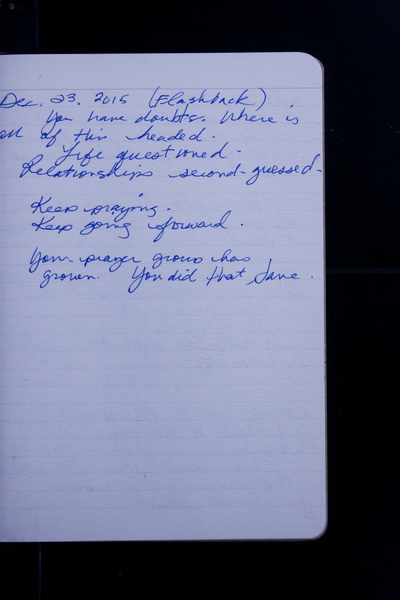 Dec. 23. 2015 (Flashback)
You have doubts. Where is
all of this headed.
Life questioned.
Relationships second-guessed.
Keep praying.
Keep going forward.
Your prayer group has
grown. You did that, Jane.